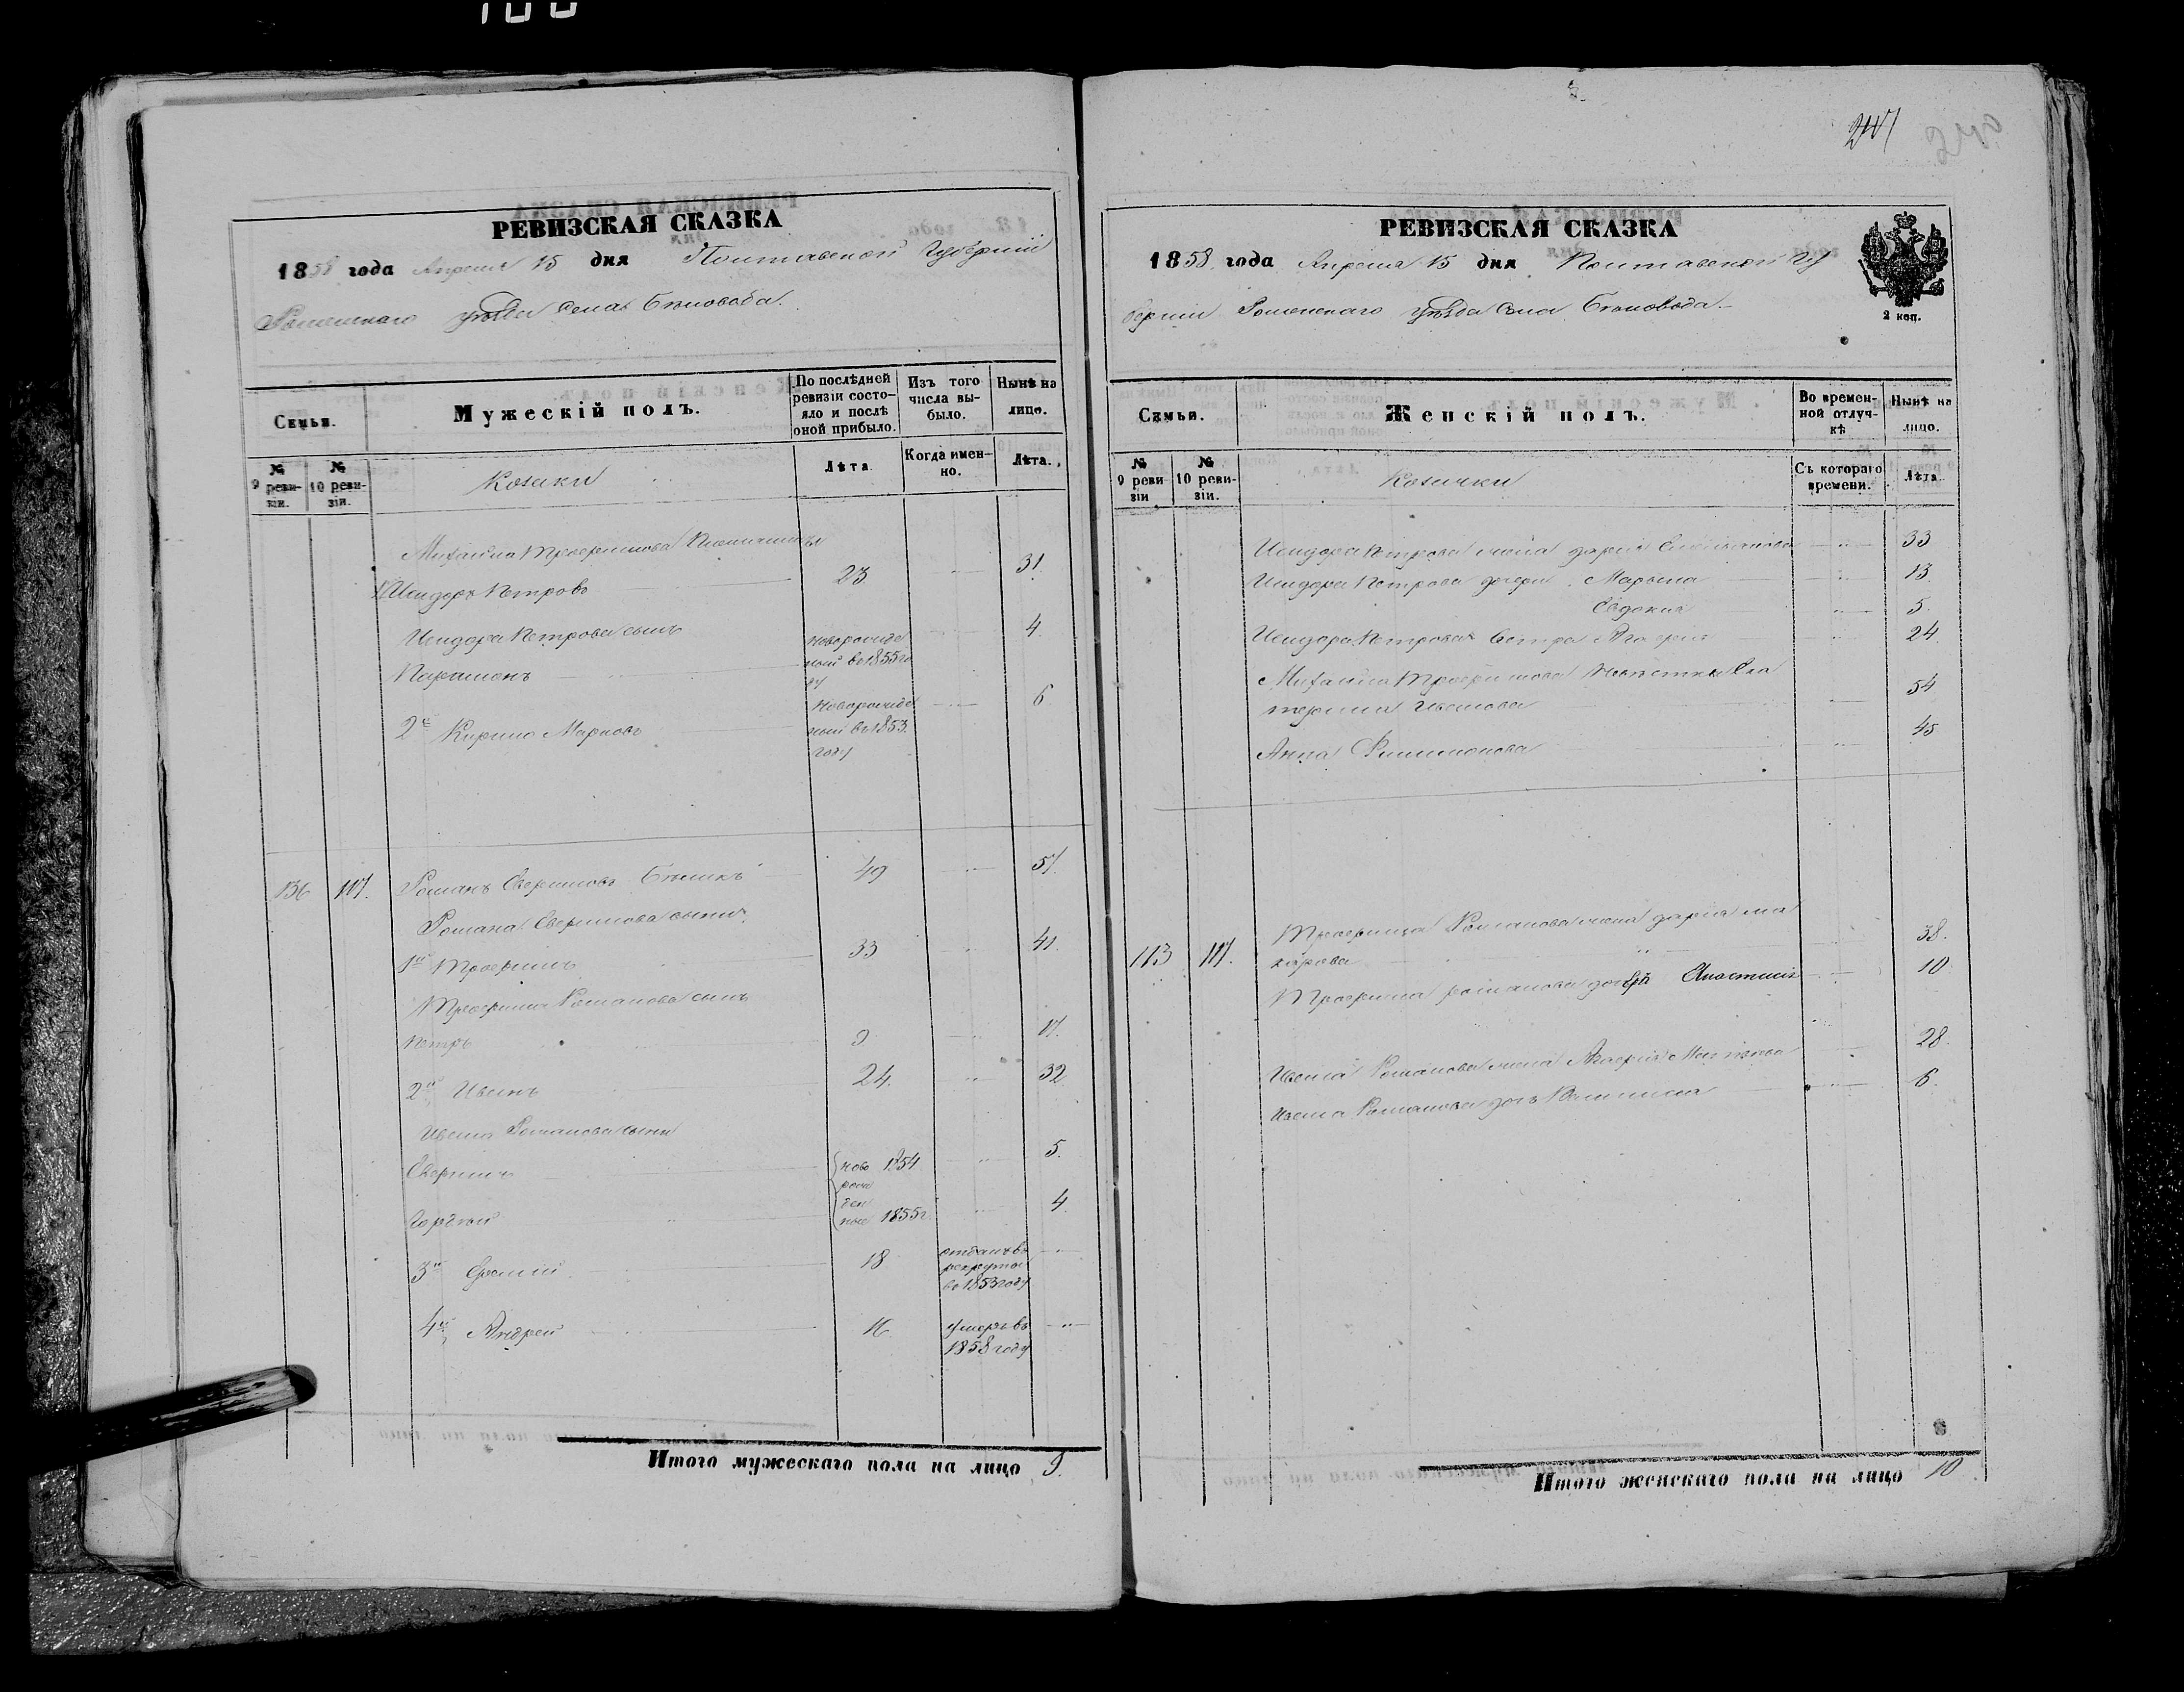 100
РЕВИЗСКАЯ СКАЗКА
1858 года Апреля 15 дня Полтавской Губерніи
Роменскаго уѣзда села Бѣловода.
Семьи.
Мужескій полъ.
По послѣдней ревизіи состо-
яло и послѣ оной прибыло.
Изъ того числа вы-
было.
Нынѣ на лицо.
№ 9 реви-
зіи.
№ 10 реви-
зіи.
Козаки
Лѣта
Когда имен-
но.
Лѣта.
Михайла Трофимова
Исидоръ Петровъ 23 31.
Исидора Петрова сынъ
Парамонъ новорожден
ный въ 1855 го
ду 4.
2й Кирило Марковъ новорожден
ный въ 1853
году 6
136 117. Романъ Ефримовъ Бѣликъ 49 57.
Романа Ефримова сыны
1й Трофимъ 33 41.
Трофима Романова сынъ
Петръ 9 17.
2й Иванъ 24. 32
Ивана Романова сыны
Ефримъ ново 1854 5.
рож
ден
Гордѣй ные 1855 г. 4
3й 18 отданъ въ
рекруты
въ 1853 году
4й Андрей 16 умеръ въ
1858 году
Итого мужескаго пола на лицо 9.
РЕВИЗСКАЯ СКАЗКА
1858 года Апреля 15 дня Полтавской Гу
берніи Роменскаго уѣзда села Бѣловода.
2 коп.
Семьи.
Женскій полъ.
Во времен-
ной отлуч-
кѣ
Нынѣ на лицо.
№ 9 реви
зіи
№ 10 реви-
зіи.
Козачки
Съ котораго времени.
Лѣта
Исидора Петрова жена Дарія 33
Исидора Петрова дочери Марьяна 13
Евдокія 5.
Исидора Петрова Сестра Агафія 24.
Михайла Трофимова Невѣстки Ека
терина Иванова 54
Анна Филимонова 45
113 117. Трофима Романова жена Дарія Ма
карова 38.
Трофима Романова дочерь Анастасія 10
Ивана Романова жена Агафія 28.
Ивана Романова дочь 6.
Итого женскаго пола на лицо 10